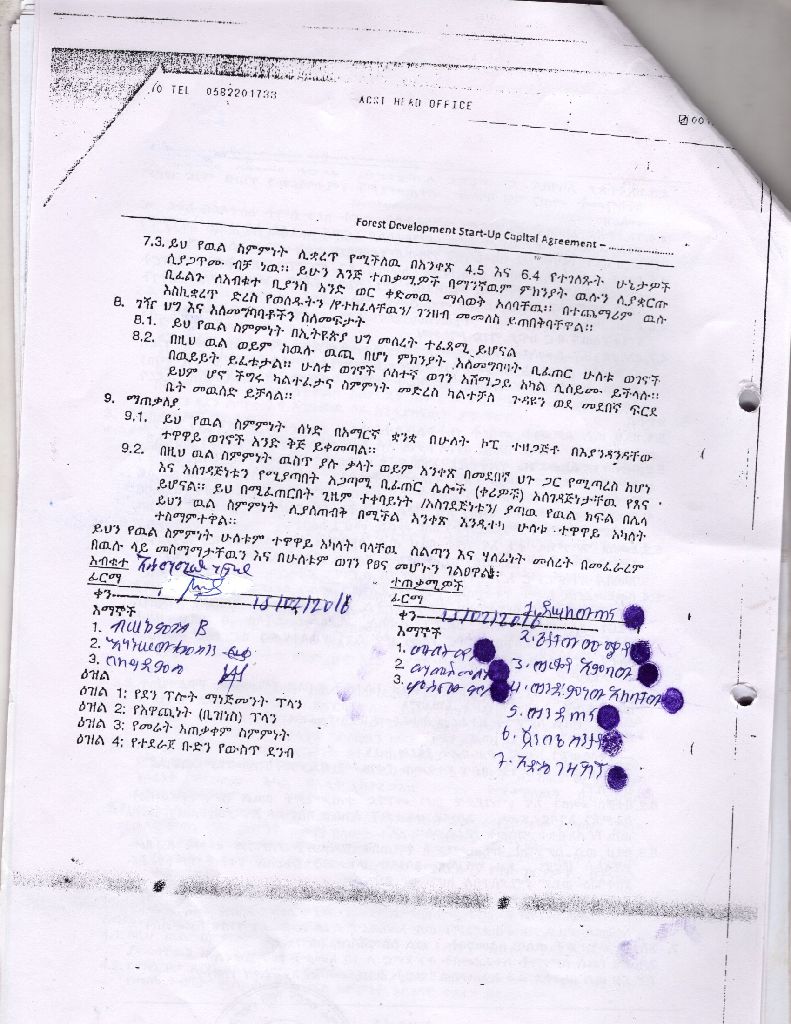 TEL 0582201733 ACSI HEAD OFFICE
Forest Development Start-Up Capital Agreement – ......................
7.3. ይህ የዉል ስምምነት ሊቋረጥ የሚችለዉ በአንቀጽ 4.5 እና 6.4 የተገለጹት ሁኔታዎች
ሲያጋጥሙ ብቻ ነዉ። ይሁን እንጅ ተጠቃሚዎች በማንኛዉም ምክንያት ዉሉን ሊያቋርጡ
ቢፈልጉ ለአብቁተ ቢያንስ አንድ ወር ቀድመዉ ማሳወቅ አለባቸዉ። በተጨማሪም ዉሉ
እስኪቋረጥ ድረስ የወሰዱትን /የተከፈላቸዉን/ ገንዘብ መመለስ ይጠበቅባቸዋል።
8. ገዥ ህግ እና አለመግባባቶችን ስለመፍታት
8.1. ይህ የዉል ስምምነት በኢትዮጵያ ህግ መሰረት ተፈጻሚ ይሆናል
8.2. በዚህ ዉል ወይም ከዉሉ ዉጪ በሆነ ምክንያት አለመግባባት ቢፈጠር ሁለቱ ወገኖች
በዉይይት ይፈቱታል። ሁለቱ ወገኖች ሶስተኛ ወገን አሸማጋይ አካል ሊሰይሙ ይችላሉ።
ይህም ሆኖ ችግሩ ካልተፈታና ስምምነት መድረስ ካልተቻለ ጉዳዩን ወደ መደበኛ ፍርደ
ቤት መዉሰድ ይቻላል።
9. ማጠቃለያ
9.1. ይህ የዉል ስምምነት ሰነድ በአማርኛ ቋንቋ በሁለት ኮፒ ተዘጋጅቶ በእያንዳንዳቸው
ተዋዋይ ወገኖች አንድ ቅጅ ይቀመጣል።
9.2. በዚህ ዉል ስምምነት ዉስጥ ያሉ ቃላት ወይም አንቀጽ በመደበኛ ህጉ ጋር የሚጣረስ ከሆነ
እና አስገዳጅነቱን የሚያጣበት አጋጣሚ ቢፈጠር ሌሎች (ቀሪዎቹ) አስገዳጅነታቸዉ የጸና
ይሆናል። ይህ በሚፈጠርበት ጊዜም ተቀባይነት /አስገደጅነቱን/ ያጣዉ የዉል ክፍል በሌላ
ይህን ዉል ስምምነት ሊያስጠብቅ በሚችል አንቀጽ እንዲተካ ሁለቱ ተዋዋይ አካላት
ተስማምተዋል።
ይህን የዉል ስምምነት ሁለቱም ተዋዋይ አካላት ባላቸዉ ስልጣን እና ሃላፊነት መሰረት በመፈራረም
በዉሉ ላይ መስማማታቸዉን እና በሁለቱም ወገን የፀና መሆኑን ገልፀዋል፡
አብቁተ
ፊርማ
ቀን 15/02/2016
እማኞች
1.
2.
3.
ተጠቃሚዎች
ፊርማ
ቀን 15/02/2016
እማኞች
1.
2.
3.
1.
2.
3.
4.
5.
6.
7.
ዕዝል
ዕዝል 1: የደን ፕሎት ማነጅመንት ፕላን
ዕዝል 2: የአዋጪነት (ቢዝነስ) ፕላን
ዕዝል 3: የመሬት አጠቃቀም ስምምነት
ዕዝል 4: የተደራጀ ቡድን የውስጥ ደንብ